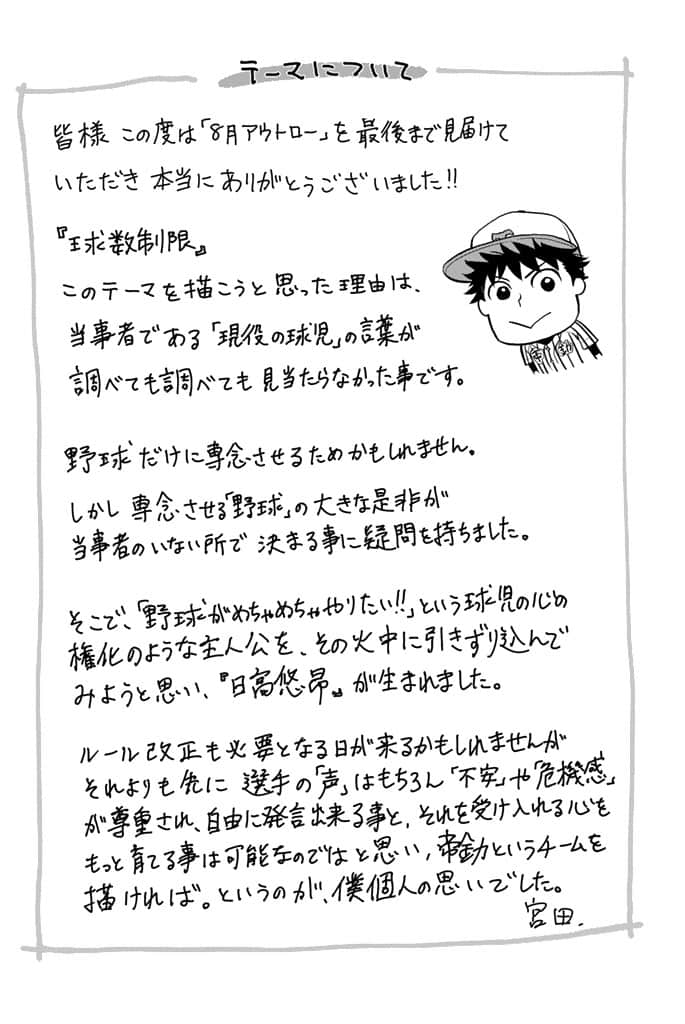 テーマについて
皆様 この度は「8月アウトロー」を最後まで見届けて
いただき 本当にありがとうございました!!
『球数制限』
このテーマを描こうと思った理由は、
当事者である「現役の球児」の言葉が
調べても調べても見当たらなかった事です。
野球だけに専念させるためかもしれません。
しかし 専念させる「野球」の大きな是非が
当事者のいない所で決まる事に疑問を持ちました。
そこで、「野球がめちゃめちゃやりたい!!」という球児の心の
権化のような主人公を、その火中に引きずり込んで
みようと思い、『日高悠昂』が生まれました。
ルール改正も必要となる日が来るかもしれませんが
それよりも先に 選手の「声」はもちろん「不安」や「危機感」
が尊重され、自由に発言出来る事と、それを受け入れる心を
もっと育てる事は可能なのではと思い、帝釛というチームを
描ければ。というのが、僕個人の思いでした。
宮田.